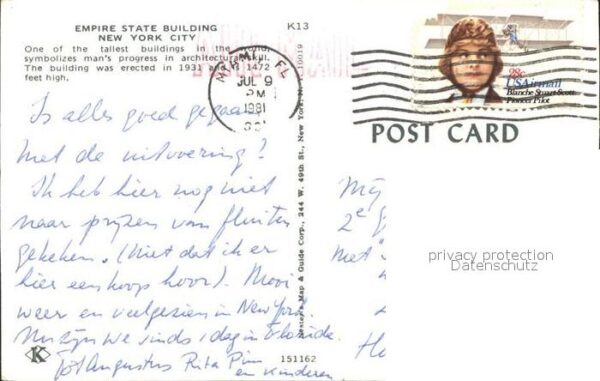 EMPIRE STATE BUILDING
NEW YORK CITY
K13
One of the tallest buildings in the world,
symbolizes man's progress in architectural skill.
The building was erected in 1931 and is 1472
feet high.
MIAMI FL
JUL 9
PM
1981
28c
USAirmail
Blanche Stuart Scott
Pioneer Pilot
POST CARD
Is alles goed gegaan
met de uitvoering?
Ik heb hier nog niet
naar prijzen van fluiten
gekeken. (Niet dat ik er
hier een koop hoor). Mooi
weer en veel gezien in New York.
Nu zijn we sinds 1 dag in Florida.
Tot Augustus Rita Pim
en kinderen
Map & Guide Corp., 244 W. 49th St., New York, N.Y. 10019
2e
met
privacy protection
Datenschutz
K
151162